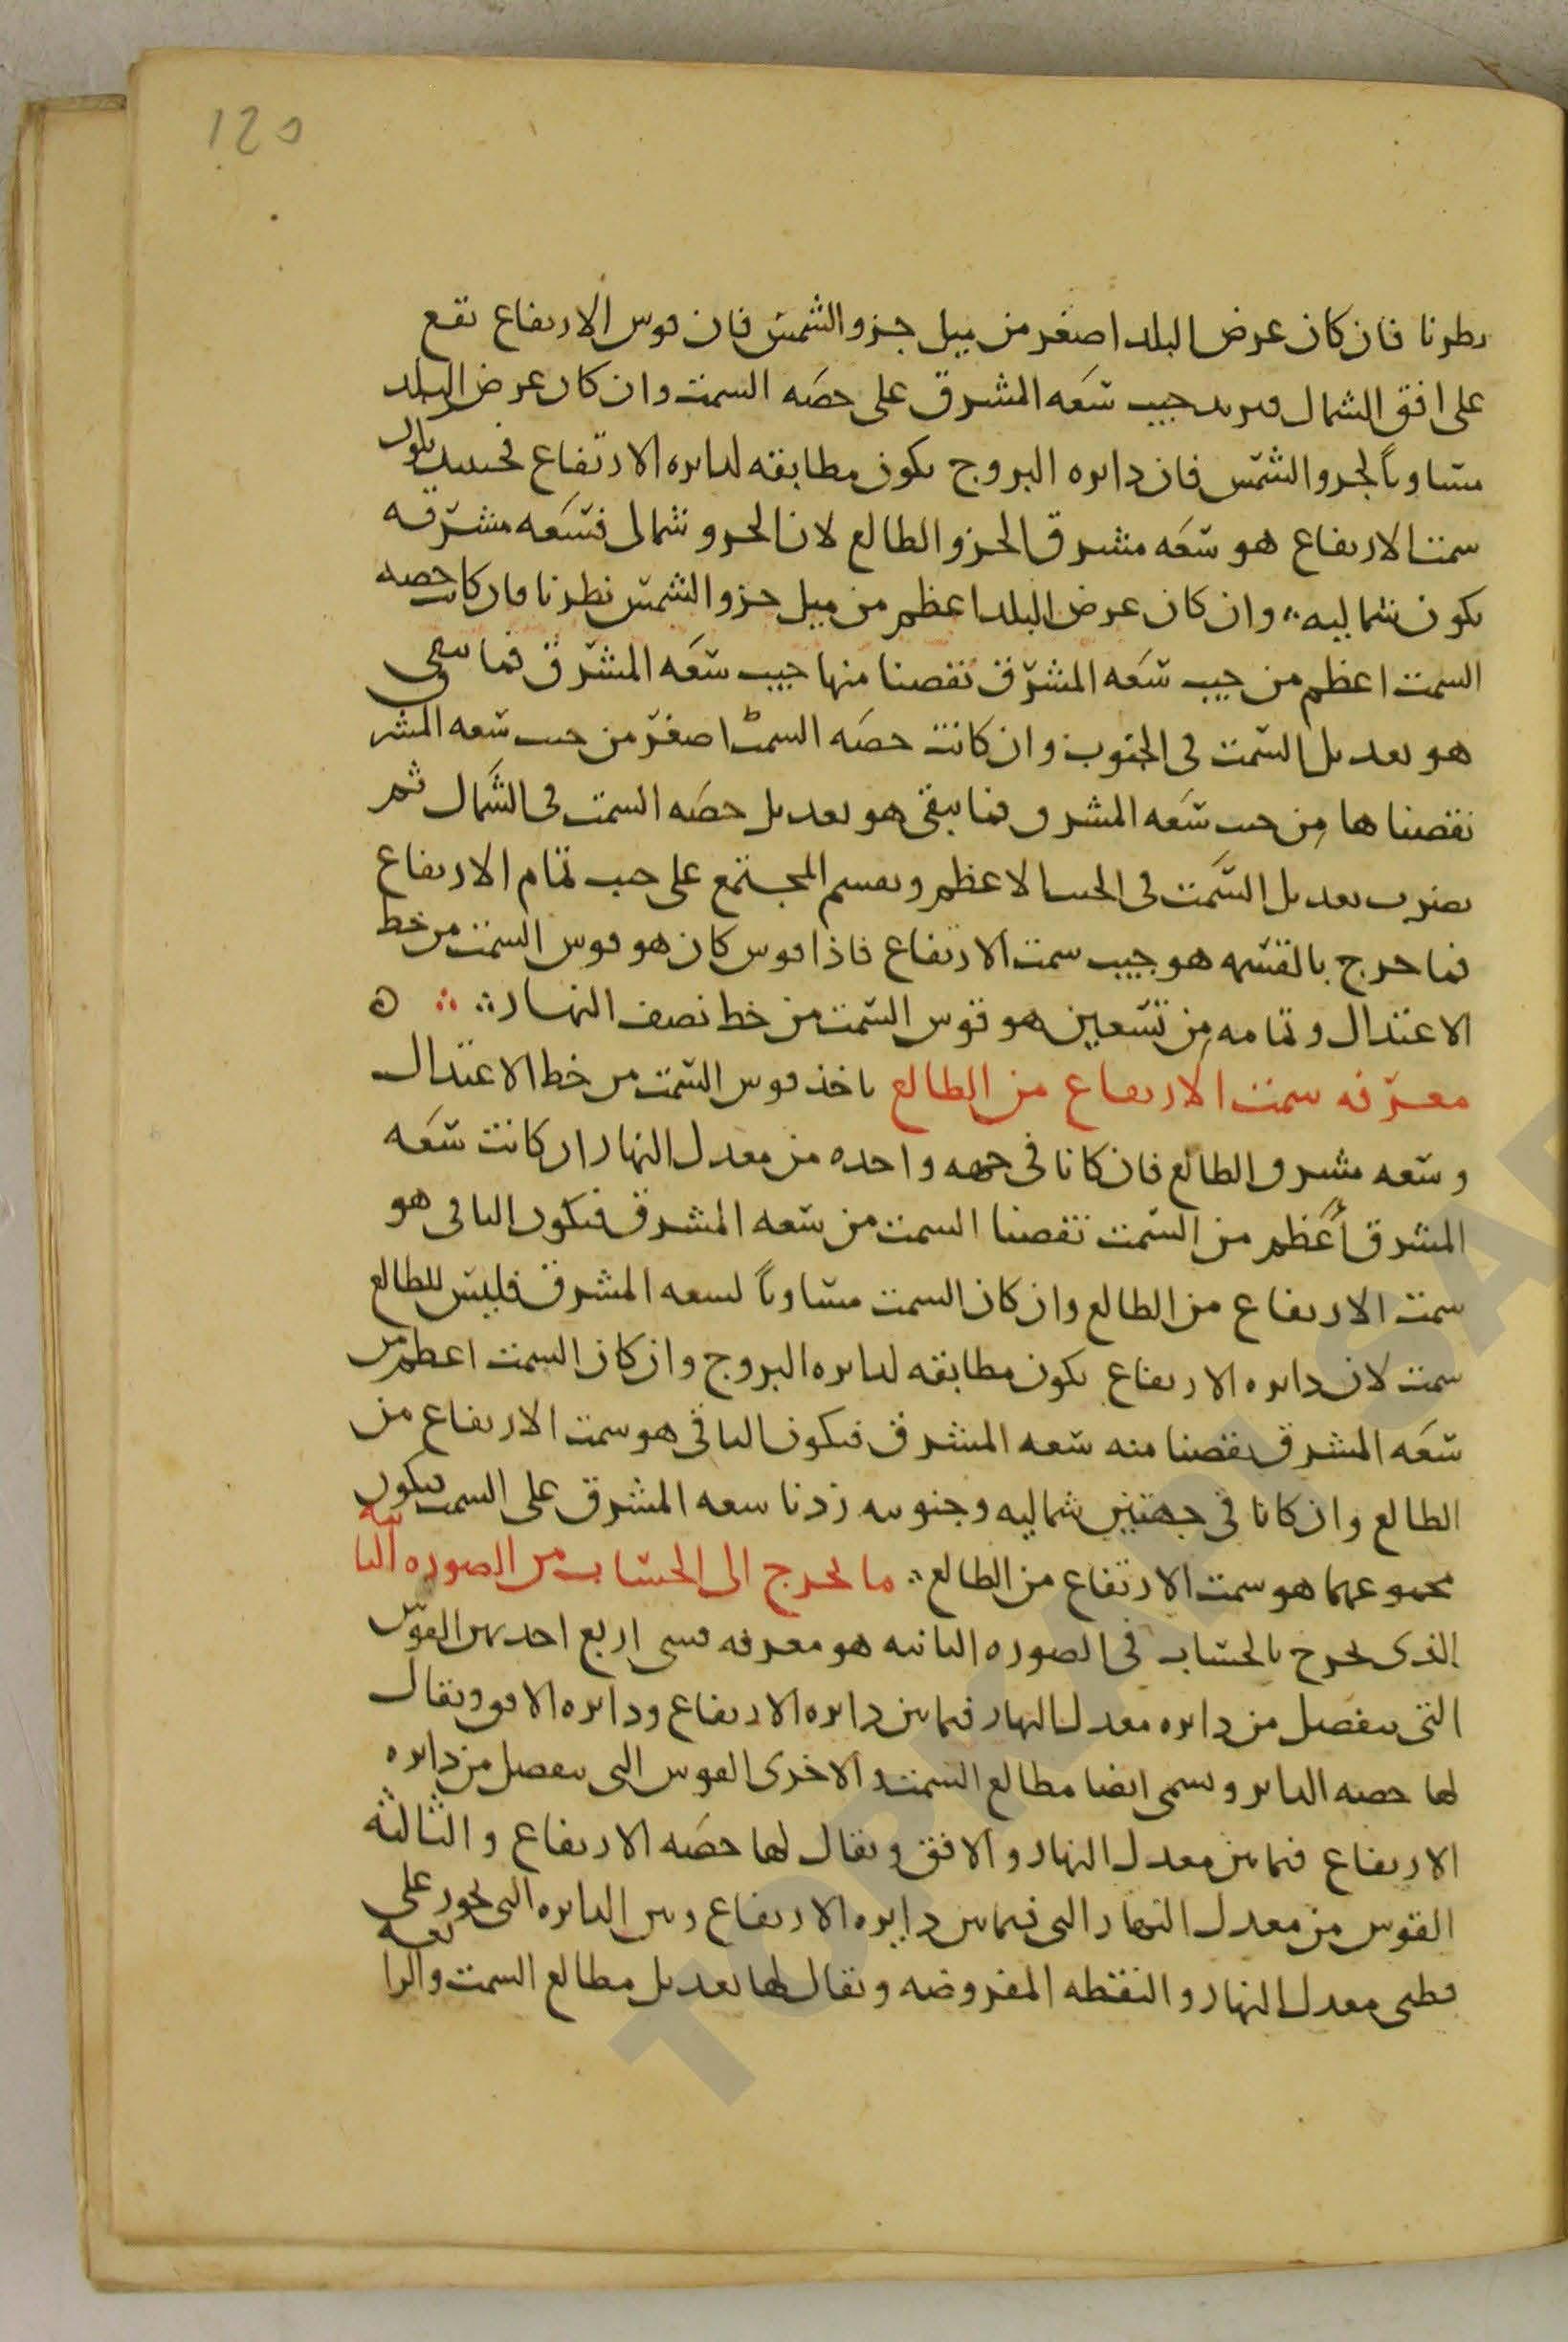 120
نطرنا فان كان عرض البلد اصغر من ميل جزو الشمس فان قوس الارتفاع تقع
على افق الشمال فنزيد جيب سعه المشرق على حصه السمت وان كان عرض البلد
مساوياً لجزو الشمس فان دايره البروج يكون مطابقه لدايره الارتفاع فحينيذ يكون
سمت الارتفاع هو سعه مشرق الجزو الطالع لان الجزو شمالى فسعه مشرقه
يكون شماليه وان كان عرض البلد اعظم من ميل جزو الشمس نطرنا فان كانت حصه
السمت اعظم من جيب سعه المشرق نقصنا منها جيب سعه المشرق فما يبقى
هو تعديل السمت فى الجنوب وان كانت حصه السمت اصغر من جيب سعه المشرق
نقصناها من جيب سعه المشرق فما يبقى هو تعديل حصه السمت فى الشمال ثم
نضرب تعديل السمت فى الجيب الاعظم ونقسم المجتمع على جيب تمام الارتفاع
فما خرج بالقسمه هو جيب سمت الارتفاع فاذا قوس كان هو قوس السمت من خط
الاعتدال وتمامه من تسعين هو قوس السمت من خط نصف النهار ه
معرفه سمت الارتفاع من الطالع ناخذ قوس السمت من خط الاعتدال
وسعه مشرق الطالع فان كانا فى جهه واحده من معدل النهار ان كانت سعه
المشرق أعظم من السمت نقصنا السمت من سعه المشرق فيكون الباقى هو
سمت الارتفاع من الطالع وان كان السمت مساوياً لسعه المشرق فليس للطالع
سمت لان دايره الارتفاع يكون مطابقه لدايره البروج وان كان السمت اعظم من
سعه المشرق نقصنا منه سعه المشرق فيكون الباقى هو سمت الارتفاع من
الطالع وان كانا فى جهتين شماليه وجنوبيه زدنا سعه المشرق على السمت فيكون
مجموعهما هو سمت الارتفاع من الطالع ما يخرج الى الحساب من الصوره الثانيه
الذى يخرج بالحساب فى الصوره الثانيه هو معرفه قسى اربع احديهن القوس
التى ينفصل من دايره معدل النهار فيما بين دايره الارتفاع ودايره الافق ويقال
لها حصه الداير ويسمى ايضا مطالع السمت والاخرى القوس التى ينفصل من دايره
الارتفاع فيما بين معدل النهار والافق ويقال لها حصه الارتفاع والثالثه
القوس من معدل النهار التى فيما بين دايره الارتفاع وبين الدايره التى تجوز على
قطبى معدل النهار والنقطه المفروضه ويقال لها تعديل مطالع السمت والرابعه